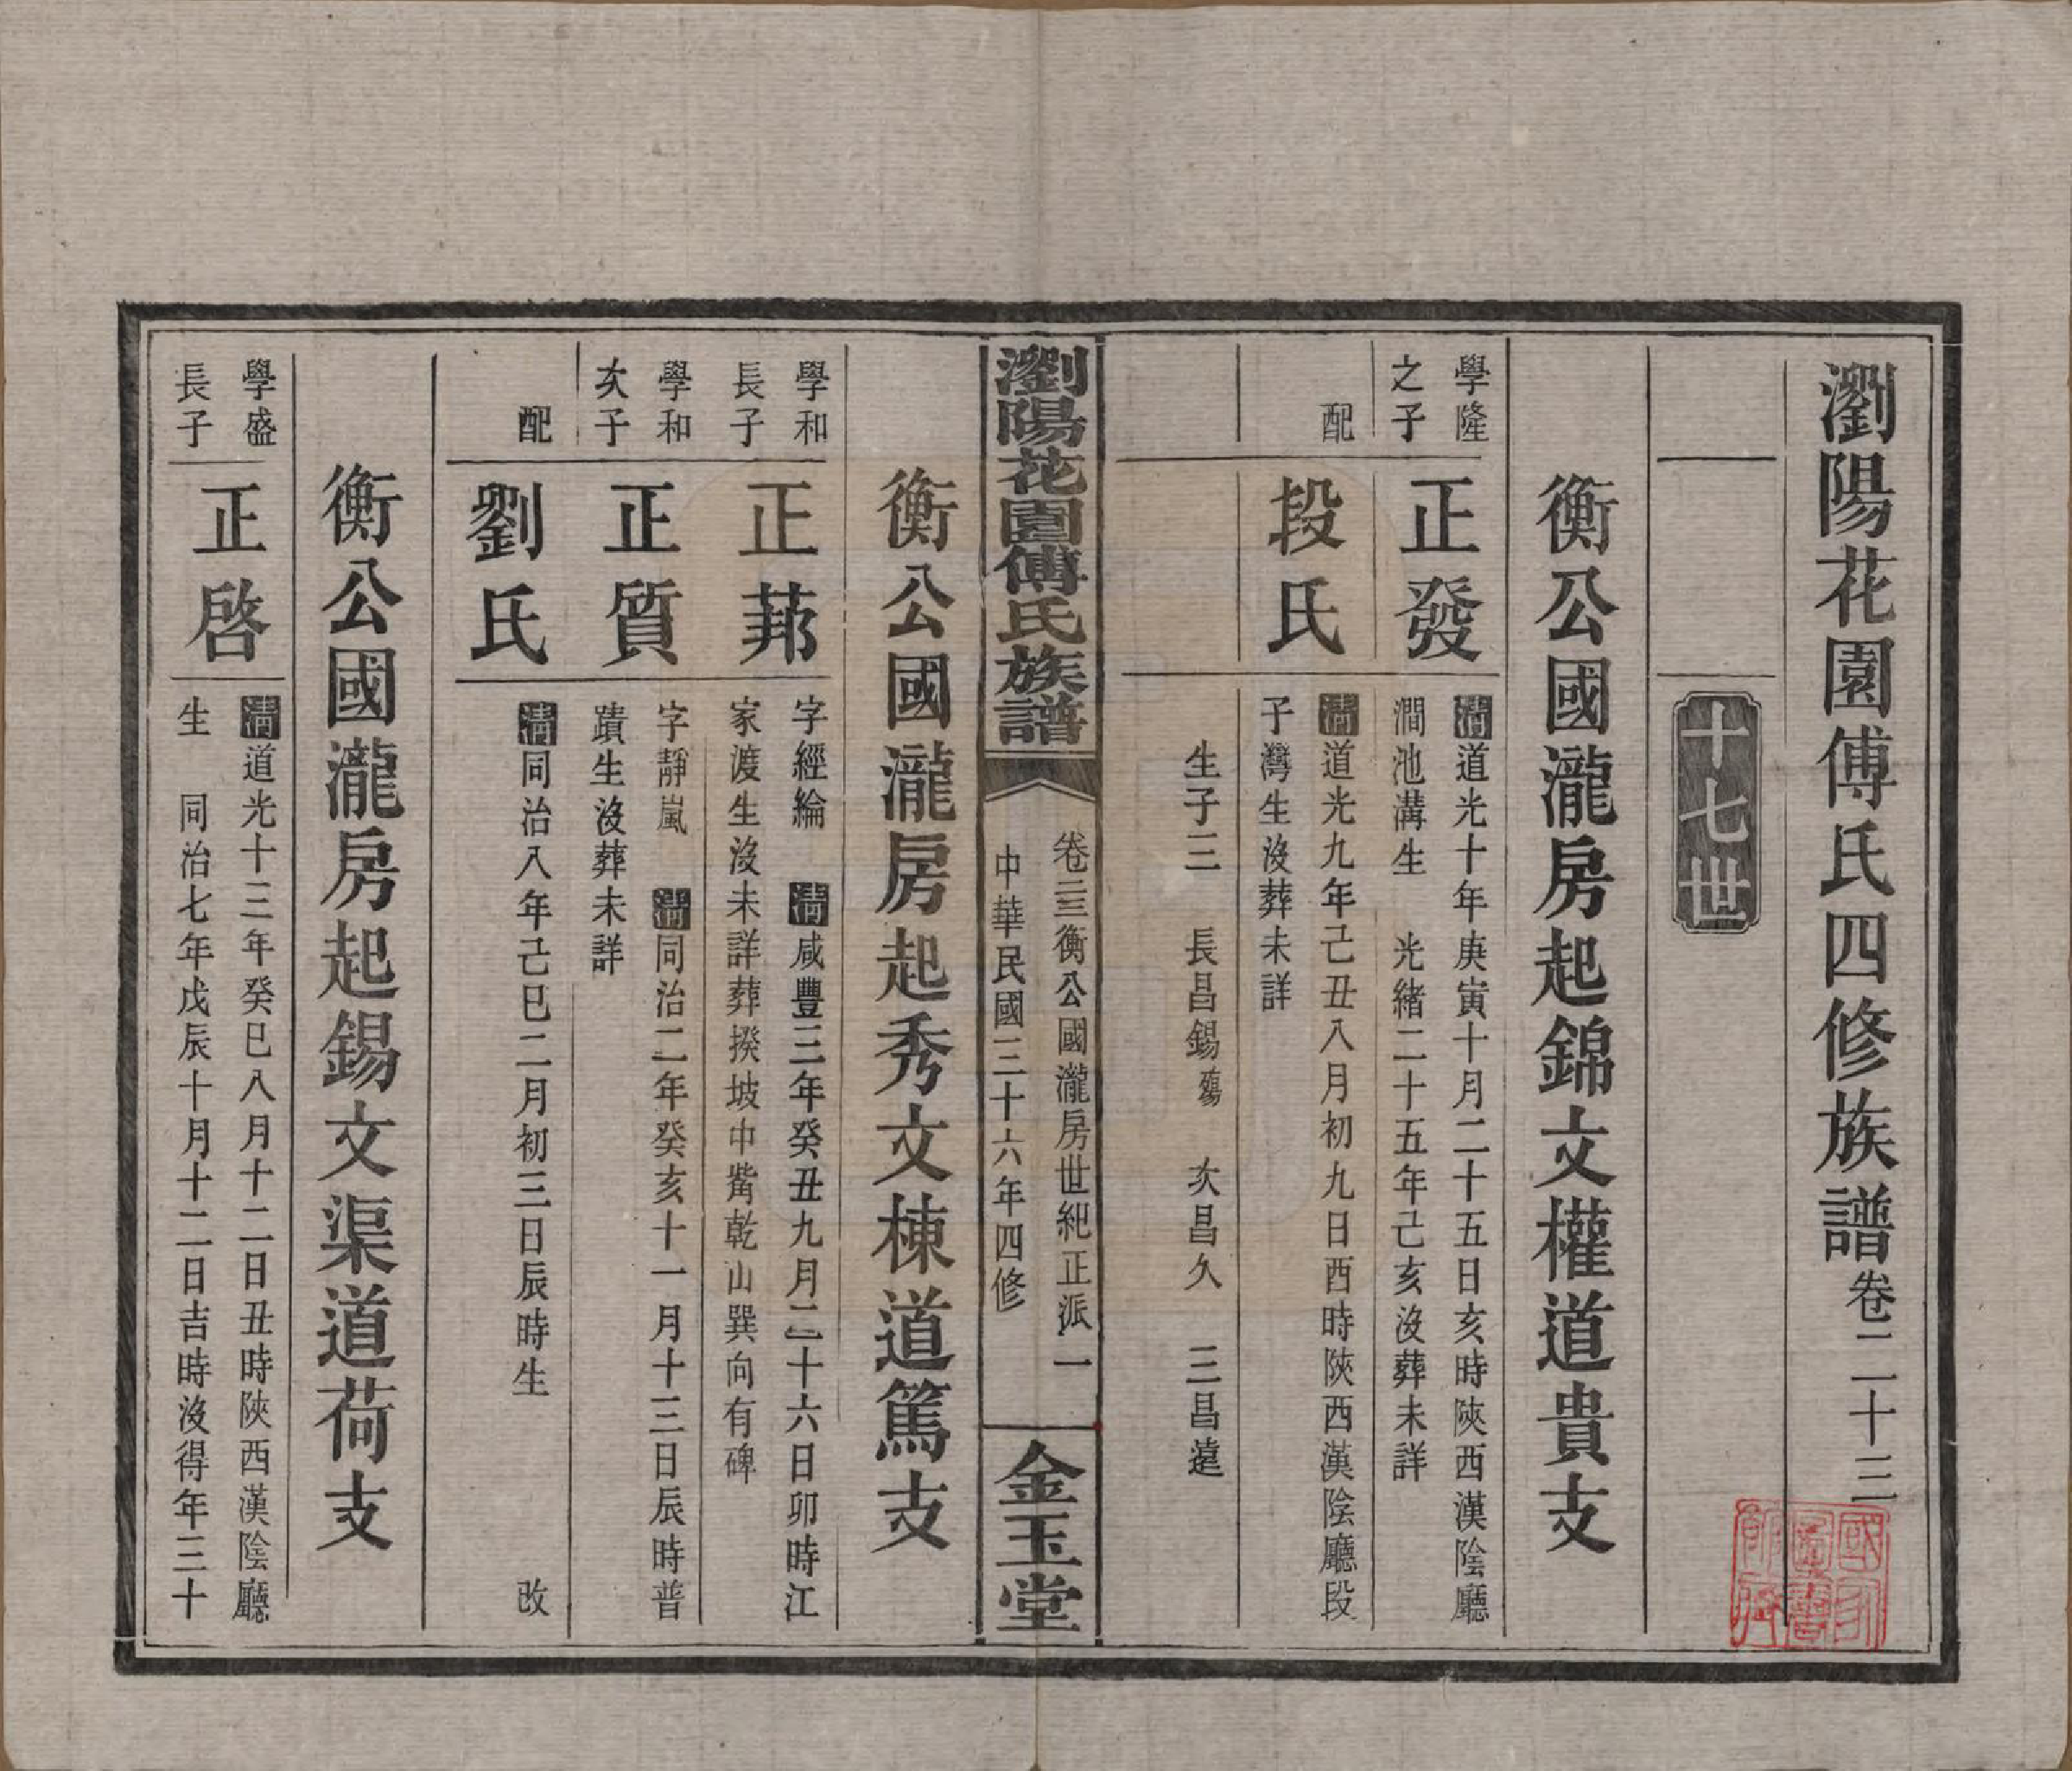 瀏陽花園傅氏四修族譜卷二十三
十七世
衡公國瀧房起錦文權道貴支
學隆
之子
正發
清道光十年庚寅十月二十五日亥時陝西漢陰廳
澗池溝生　光緒二十五年己亥沒葬未詳
配
段氏
清道光九年己丑八月初九日酉時陝西漢陰廳段
子灣生沒葬未詳
生子三　長昌錫殤　次昌久　三昌遠
瀏陽花園傅氏族譜
卷二三衡公國瀧房世紀正派　一
中華民國三十六年四修
金玉堂
衡公國瀧房起秀文棟道篤支
學和
長子
正邦
字經綸　清咸豐三年癸丑九月二十六日卯時江
家渡生沒未詳葬揆坡中嘴乾山巽向有碑
學和
次子
正質
字靜嵐　清同治二年癸亥十一月十三日辰時普
蹟生沒葬未詳
配
劉氏
清同治八年己巳二月初三日辰時生　改
衡公國瀧房起錫文渠道荷支
學盛
長子
正啓
清道光十三年癸巳八月十二日丑時陝西漢陰廳
生　同治七年戊辰十月十二日吉時沒得年三十